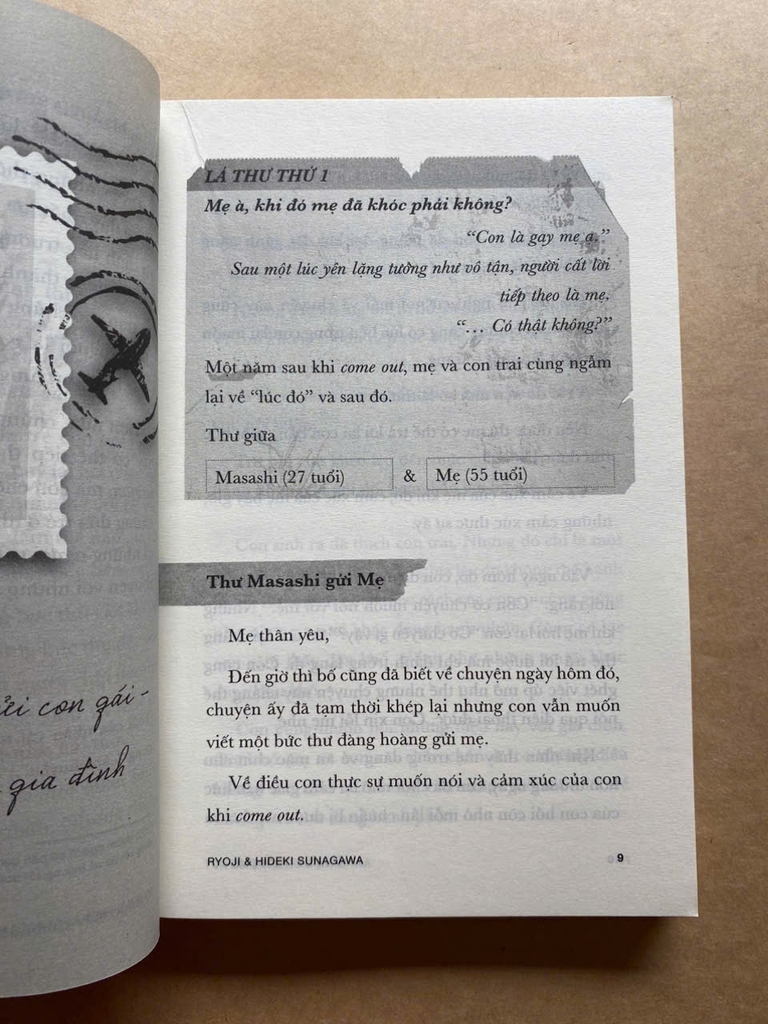 ửi con gái -
gia đình
LÁ THƯ THỨ 1
Mẹ à, khi đó mẹ đã khóc phải không?
“Con là gay mẹ ạ.”
Sau một lúc yên lặng tưởng như vô tận, người cất lời
tiếp theo là mẹ.
“… Có thật không?”
Một năm sau khi come out, mẹ và con trai cùng ngẫm
lại về “lúc đó” và sau đó.
Thư giữa
Masashi (27 tuổi) & Mẹ (55 tuổi)
Thư Masashi gửi Mẹ
Mẹ thân yêu,
Đến giờ thì bố cũng đã biết về chuyện ngày hôm đó,
chuyện ấy đã tạm thời khép lại nhưng con vẫn muốn
viết một bức thư đàng hoàng gửi mẹ.
Về điều con thực sự muốn nói và cảm xúc của con
khi come out.
RYOJI & HIDEKI SUNAGAWA 9